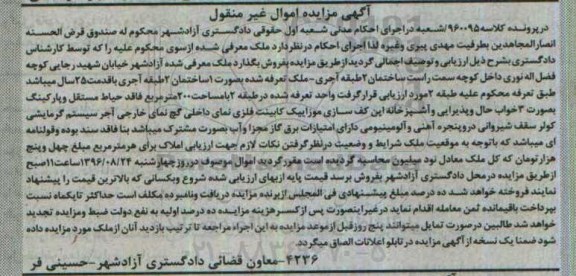 آگهی مزایده اموال غیر منقول
در پرونده کلاسه ۹۶۰۰۹۵/شعبه در اجرای احکام مدنی شعبه اول حقوقی دادگستری آزادشهر محکوم له صندوق قرض الحسنه
انصار المجاهدین بطرفیت مهدی پیری وغیره لذا اجرای احکام در نظر دارد ملک معرفی شده از سوی محکوم علیه را که توسط کارشناس
دادگستری بشرح ذیل ارزیابی و توصیف اجمالی گردید از طریق مزایده بفروش بگذارد ملک معرفی شده آزادشهر خیابان شهید رجایی کوچه
فضل اله نوری داخل کوچه سمت راست ساختمان ۲طبقه آجری-ملک تعرفه شده بصورت ۱ساختمان ۲طبقه آجری باقدمت ۲۵سال میباشد
طبق تعرفه محکوم علیه طبقه ۲مورد ارزیابی قرار گرفت واحد تعرفه شده در طبقه ۲بامساحت ۲۰۰مترمربع فاقد حیاط مستقل وپارکینگ
بصورت ۳خواب حال وپذیرایی و آشپزخانه اپن کف سازی موزاییک کابینت فلزی نمای داخلی گچ نمای خارجی آجر سیستم گرمایشی
کولر سقف شیروانی درو پنجره آهنی و آلومینیومی دارای امتیازات برق گاز مجزا وآب بصورت مشترک میباشد بنا فاقد سند بوده وقولنامه
ای میباشد که باتوجه به موقعیت ملک شرایط و وضعیت در نظر گرفتن نکات لازم جهت ارزیابی املاک برای هرمتر مربع مبلغ چهل وپنج
هزار تومان که کل ملک معادل نود میلیون محاسبه گردیده است مقرر گردید اموال موصوف در روز چهارشنبه ۱۳۹۶/۰۸/۲۴ ساعت ۱۱صبح
از طریق مزایده در محل دادگستری آزادشهر بفروش برسد قیمت پایه ازبهای ارزیابی شده شروع وبکسانی که بالاترین قیمت را پیشنهاد
نمایند فروخته خواهد شد ده درصد مبلغ پیشنهادی فی المجلس از برنده مزایده دریافت ونامبرده مکلف است حداکثر تا یکماه نسبت
بپرداخت باقیمانده ثمن معامله اقدام نماید در غیر اینصورت پس از کسر هزینه مزایده ده درصد اولیه به نفع دولت ضبط ومزایده تجدید
خواهد شد طالبین در صورت تمایل میتوانند پنج روز قبل از موعد مزایده به این اجراء مراجعه تا ترتیب بازدید آنان از ملک مورد مزایده داده
شود ضمنا یک نسخه از آگهی مزایده در تابلو اعلانات الصاق میگردد.
۴۲۳۶-معاون قضائی دادگستری آزادشهر-حسینی فر